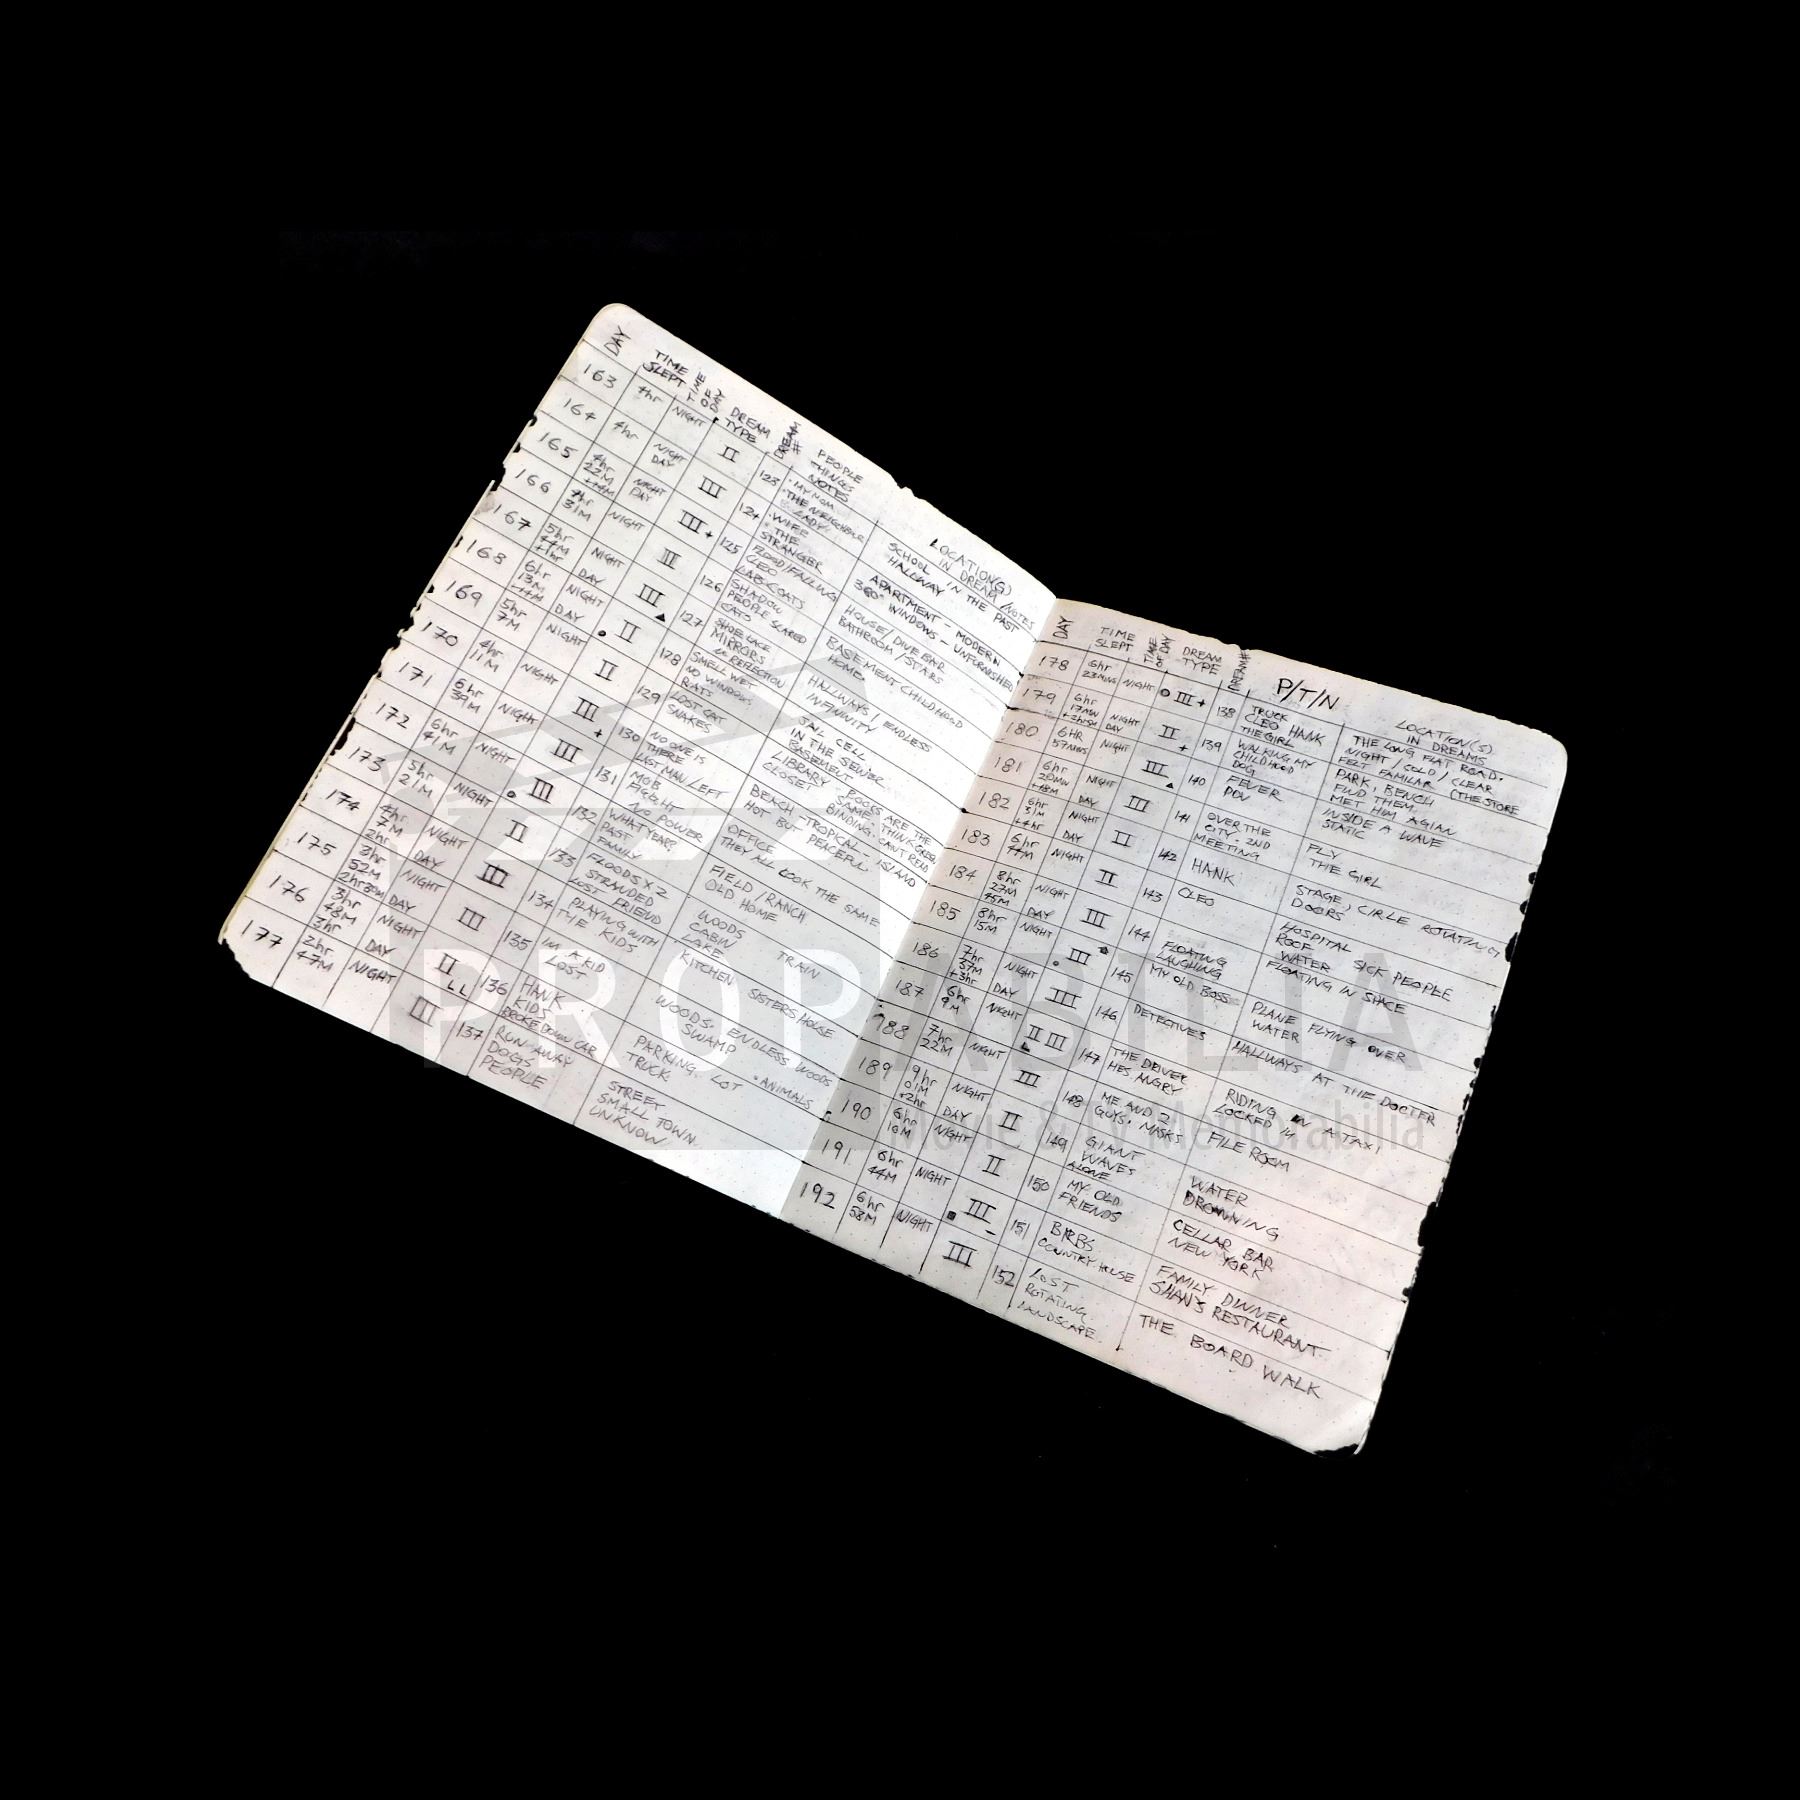 DAY
TIME SLEPT
TIME OF DAY
DREAM TYPE
DREAM #
PEOPLE THINGS NOTES
LOCATION(S) IN DREAM/NOTES
163 4hr NIGHT II 123 • MY MOM • THE NEIGHBOUR LADY SCHOOL IN THE PAST HALLWAY
164 4hr NIGHT DAY III 124 • WIFE • THE STRANGER APARTMENT - MODERN 360° WINDOWS - UNFURNISHED
165 4hr 22M NIGHT DAY III + 125 FLOOD/FALLING CLEO LAB COATS HOUSE/DIVE BAR BATHROOM/STARS
166 31M NIGHT III 126 SHADOW PEOPLE SCARED CATS BASEMENT CHILDHOOD HOME.
167 5hr 44M +1hr NIGHT DAY III ▲ 127 SHOE LACE MIRRORS REFLECTION HALLWAYS/ENDLESS INFINITY
168 6hr 13M NIGHT DAY • II 128 SMELL WET NO WINDOWS RATS JAIL CELL IN THE SEWER BASEMENT
169 5hr 7M NIGHT II 129 LOST CAT SNAKES LIBRARY BOOKS ARE THE SAME BINDING. CANT READ CLOSET
170 4hr 11M NIGHT III + 130 NO ONE IS THERE LAST MAN/LEFT BEACH - TROPICAL - ISLAND HOT BUT PEACEFUL
171 6hr 39M NIGHT III 131 MOB FIGHT NO POWER OFFICE THEY ALL LOOK THE SAME
172 6hr 41M NIGHT • III 132 WHAT YEAR? PAST FAMILY FIELD/RANCH OLD HOME
173 5hr 21M NIGHT II 133 FLOODS X 2 STRANDED LOST FRIEND WOODS CABIN LAKE TRAIN
174 4hr 7M 2hr NIGHT DAY III 134 PLAYING WITH THE KIDS KITCHEN SISTERS HOUSE
175 3hr 52M 2hr 30M NIGHT DAY III 135 IM A KID LOST WOODS. ENDLESS WOODS SWAMP
176 3hr 48M 3hr NIGHT DAY II LL 136 HANK KIDS BROKE DOWN CAR PARKING LOT • ANIMALS TRUCK
177 2hr 47M NIGHT III 137 RUN AWAY DOGS PEOPLE STREET SMALL TOWN UNKNOW
DAY
TIME SLEPT
TIME OF DAY
DREAM TYPE
DREAM #
P/T/N
LOCATION(S) IN DREAMS
178 6hr 23MINS NIGHT • III + 138 TRUCK HANK CLEO THE GIRL THE LONG FLAT ROAD. NIGHT/COLD/CLEAR
179 6hr 17MIN NIGHT DAY II + 139 WALKING MY CHILDHOOD DOG FELT FAMILIAR (THE STORE PARK, BENCH FIND THEM
180 6HR 57MINS NIGHT III ▲ 140 FEVER POV MET HIM AGIAN INSIDE A WAVE STATIC
181 6hr 20MIN +48M NIGHT DAY III 141 OVER THE CITY. 2ND MEETING FLY THE GIRL
182 6hr 31M +4hr NIGHT DAY II 142 HANK STAGE, CIRCLE ROTATING DOORS
183 6hr 44M NIGHT II 143 CLEO HOSPITAL SICK PEOPLE ROOF
184 8hr 27M 45M NIGHT DAY III 144 FLOATING LAUGHING WATER FLOATING IN SPACE
185 8hr 15M NIGHT • III 145 MY OLD BOSS PLANE FLYING OVER WATER
186 7hr 57M +3hr NIGHT DAY III 146 DETECTIVES HALLWAYS AT THE DOCTER
187 6hr 9M NIGHT II III 147 THE DRIVER HES ANGRY RIDING IN A TAXI LOCKED IN
188 7hr 22M NIGHT III 148 ME AND 2 GUYS. MASKS FILE ROOM
189 9hr 01M +2hr NIGHT DAY II 149 GIANT WAVES ALONE WATER DROWNING
190 6hr 10M NIGHT II 150 MY OLD FRIENDS CELLAR BAR NEW YORK
191 6hr 44M NIGHT ■ III - 151 BIRBS COUNTRY HOUSE FAMILY DINNER SHAN'S RESTAURANT
192 6hr 58M NIGHT III 152 LOST ROTATING LANDSCAPE THE BOARD WALK
PROPABILIA
Movie & TV Memorabilia